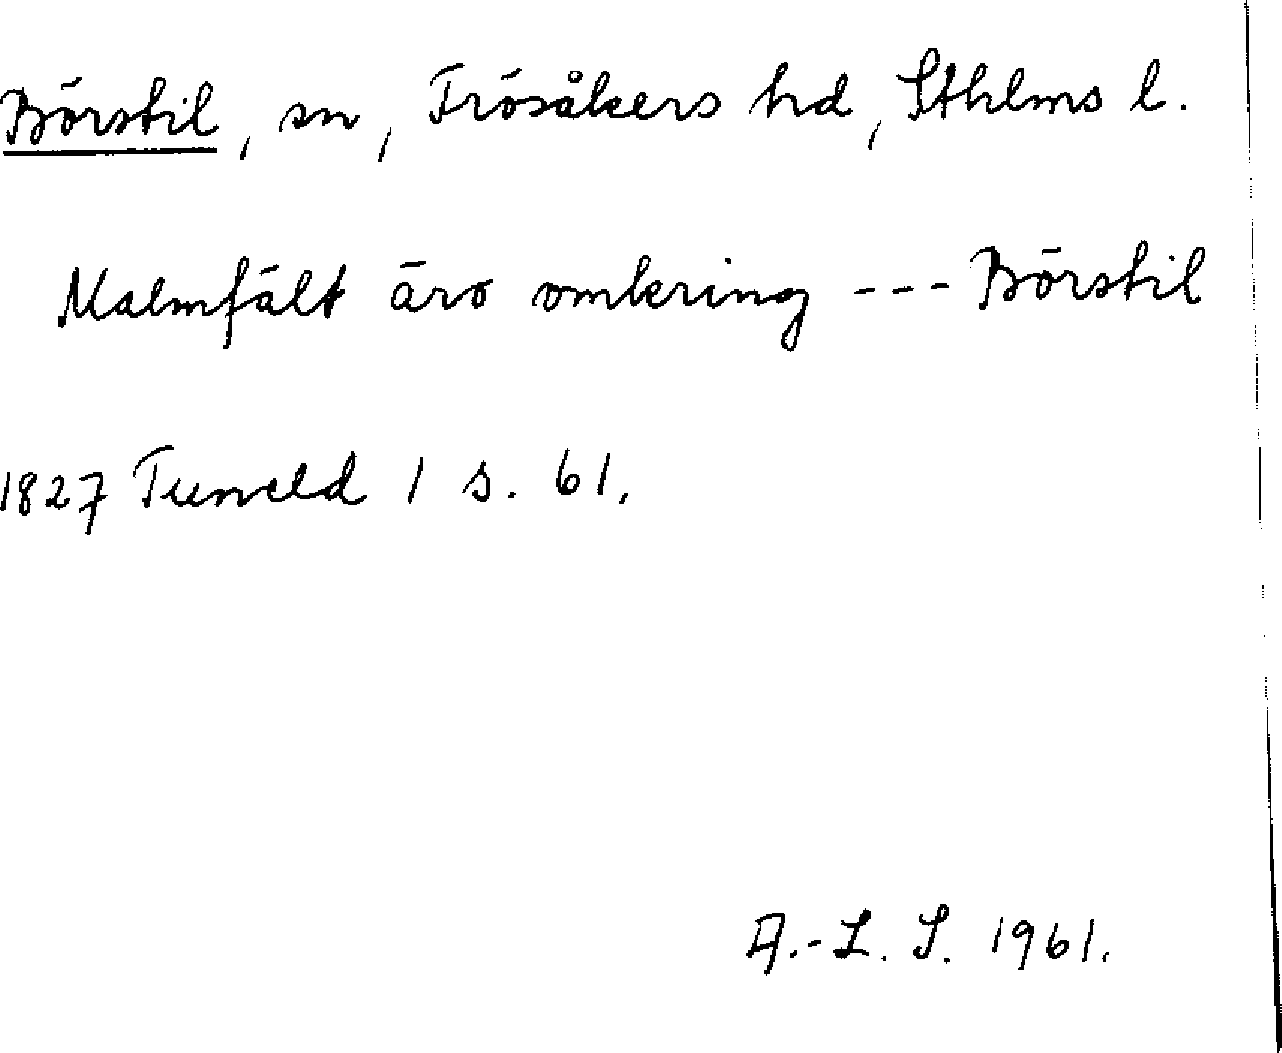 Börstil, sn, Frösåkers hd, Sthlms l.
Malmfält äro omkring --- Börstil
1827 Tuneld 1 s. 61.
A.-L. S. 1961.